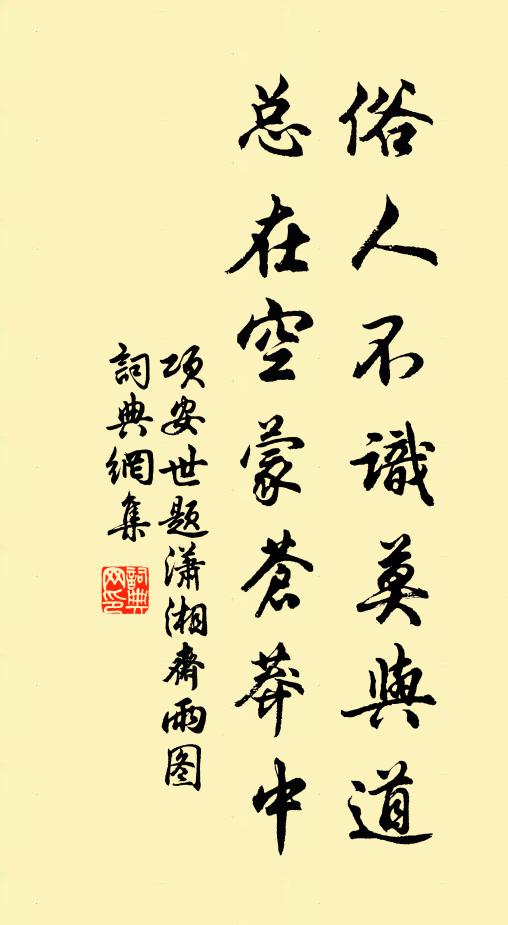 俗人不識莫與道
总在空蒙苍莽中
项安世题潇湘斋雨图
詞典網集
詞典網印